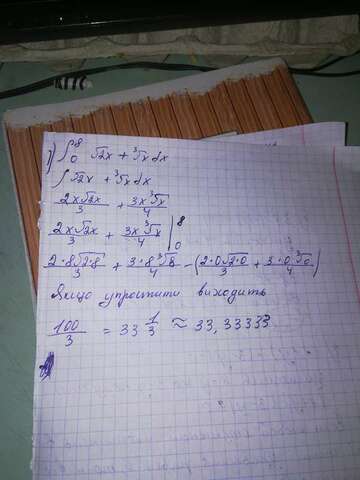 1) ∫₀⁸ √2x + ³√x dx
∫ √2x + ³√x dx
2x√2x/3 + 3x ³√x/4
2x√2x/3 + 3x ³√x/4 |₀⁸
2·8√2·8/3 + 3·8 ³√8/4 - (2·0√2·0/3 + 3·0 ³√0/4)
Якщо упростити виходить
100/3 = 33 1/3 ≈ 33,33333